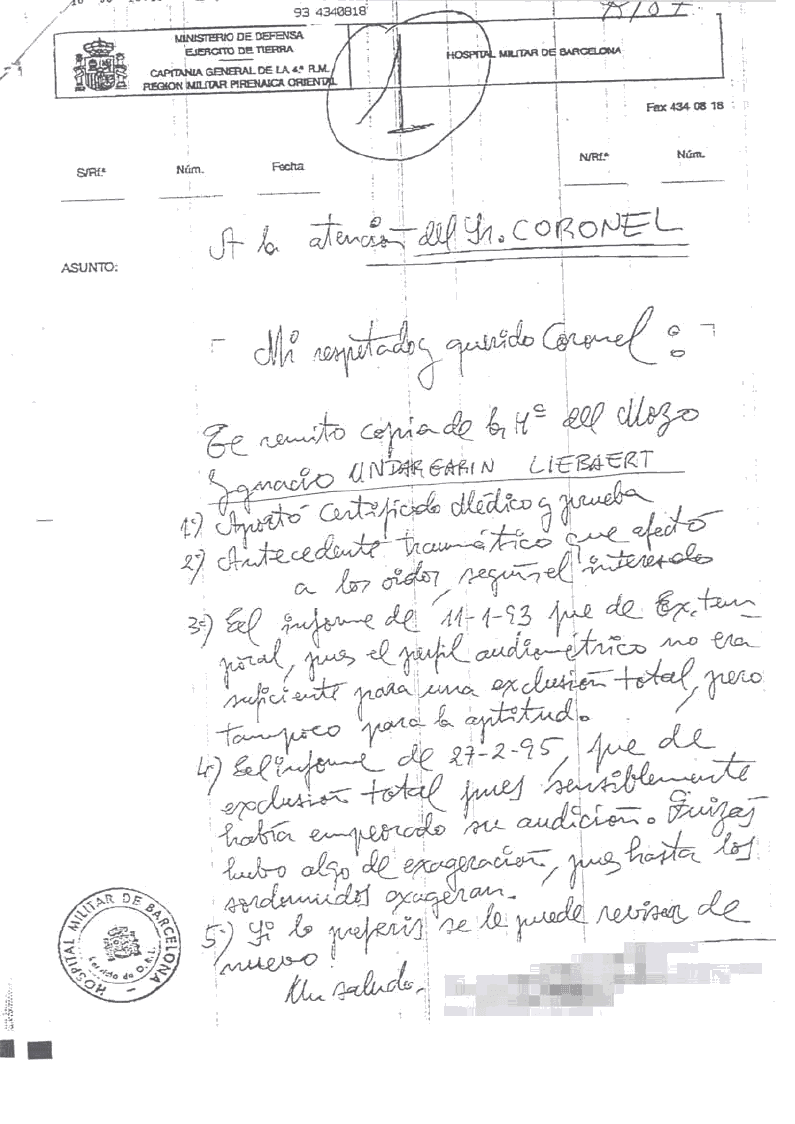 93 4340818
MINISTERIO DE DEFENSA
EJERCITO DE TIERRA
CAPITANIA GENERAL DE LA 4.ª R.M.
REGION MILITAR PIRENAICA ORIENTAL
HOSPITAL MILITAR DE BARCELONA
1
Fax 434 08 18
S/Rf.ª Núm. Fecha N/Rf.ª Núm.
A la atención del Sr. CORONEL
ASUNTO:
Mi respetado y querido Coronel:
Te remito copia de la Hª del Mozo
Ygnacio UNDARGARIN LIEBAERT
1º) Aportó Certificado Médico y prueba
2º) Antecedente traumático que afectó
a los oidos, según el interesado
3º) El informe de 11-1-93 fue de Ex. tem_
poral, pues el perfil audiométrico no era
suficiente para una exclusión total, pero
tampoco para la aptitud.
4) El informe de 27-2-95, fue de
exclusión total pues sensiblemente
había empeorado su audición. Quizás
hubo algo de exageración, pues hasta los
sordomudos exageran.
5) Si lo preferis se le puede revisar de
nuevo
Un saludo.
HOSPITAL MILITAR DE BARCELONA
Servicio de O.R.L.